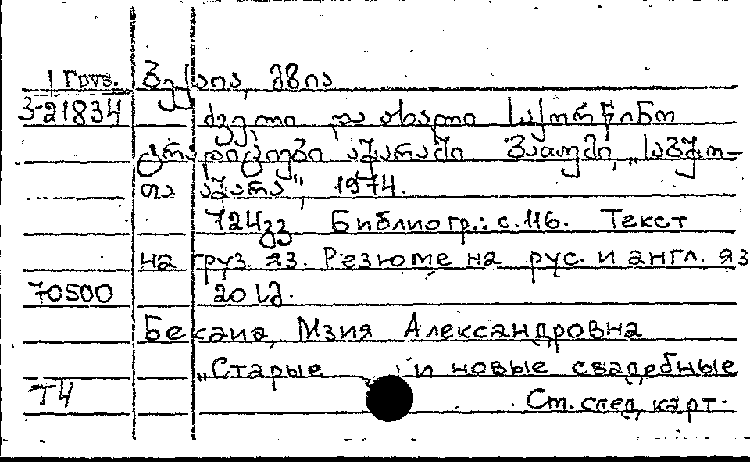 Груз. ბექაია, მზია
3-21834 ძველი და ახალი საქორწინო
ტრადიციები აჭარაში ბათუმი, „საბჭო-
თა აჭარა", 1974.
124გვ Библиогр.: с. 116. Текст
на груз. яз. Резюме на рус. и англ. яз
70500 20 к.
Бекаиа, Мзия Александровна
„Старые и новые свадебные
Т4 См. след, карт.